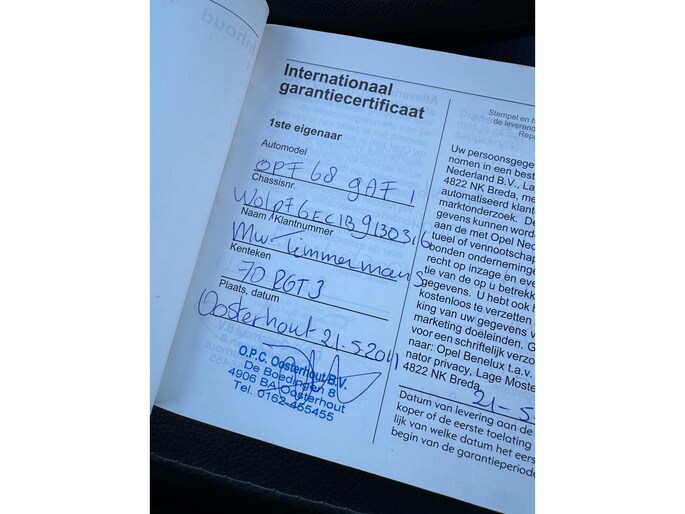 Internationaal
garantiecertificaat
1ste eigenaar
Automodel
OPF 68 gAF 1
Chassisnr.
Naam / Klantnummer
Mw Timmermans
Kenteken
70 RGT 3
Plaats, datum
Oosterhout 21-5-2011
O.P.C. Oosterhout B.V.
De Boedingen 8
4906 BA Oosterhout
Tel. 0162-455455
Stempel en h
de leverend
Repa
Uw persoonsgege
nomen in een best
Nederland B.V., Lag
4822 NK Breda, me
automatiseerd klant
marktonderzoek. De
gevens kunnen word
aan de met Opel Ned
tueel of vennootschap
bonden ondernemingen
recht op inzage en eve
tie van de op u betrekk
gegevens. U hebt ook h
kostenloos te verzetten
king van uw gegevens v
marketing doeleinden. G
voor een schriftelijk verzo
naar: Opel Benelux t.a.v.
nator privacy, Lage Moste
4822 NK Breda
21-5
Datum van levering aan de
koper of de eerste toelating
lijk van welke datum het eers
begin van de garantieperiode